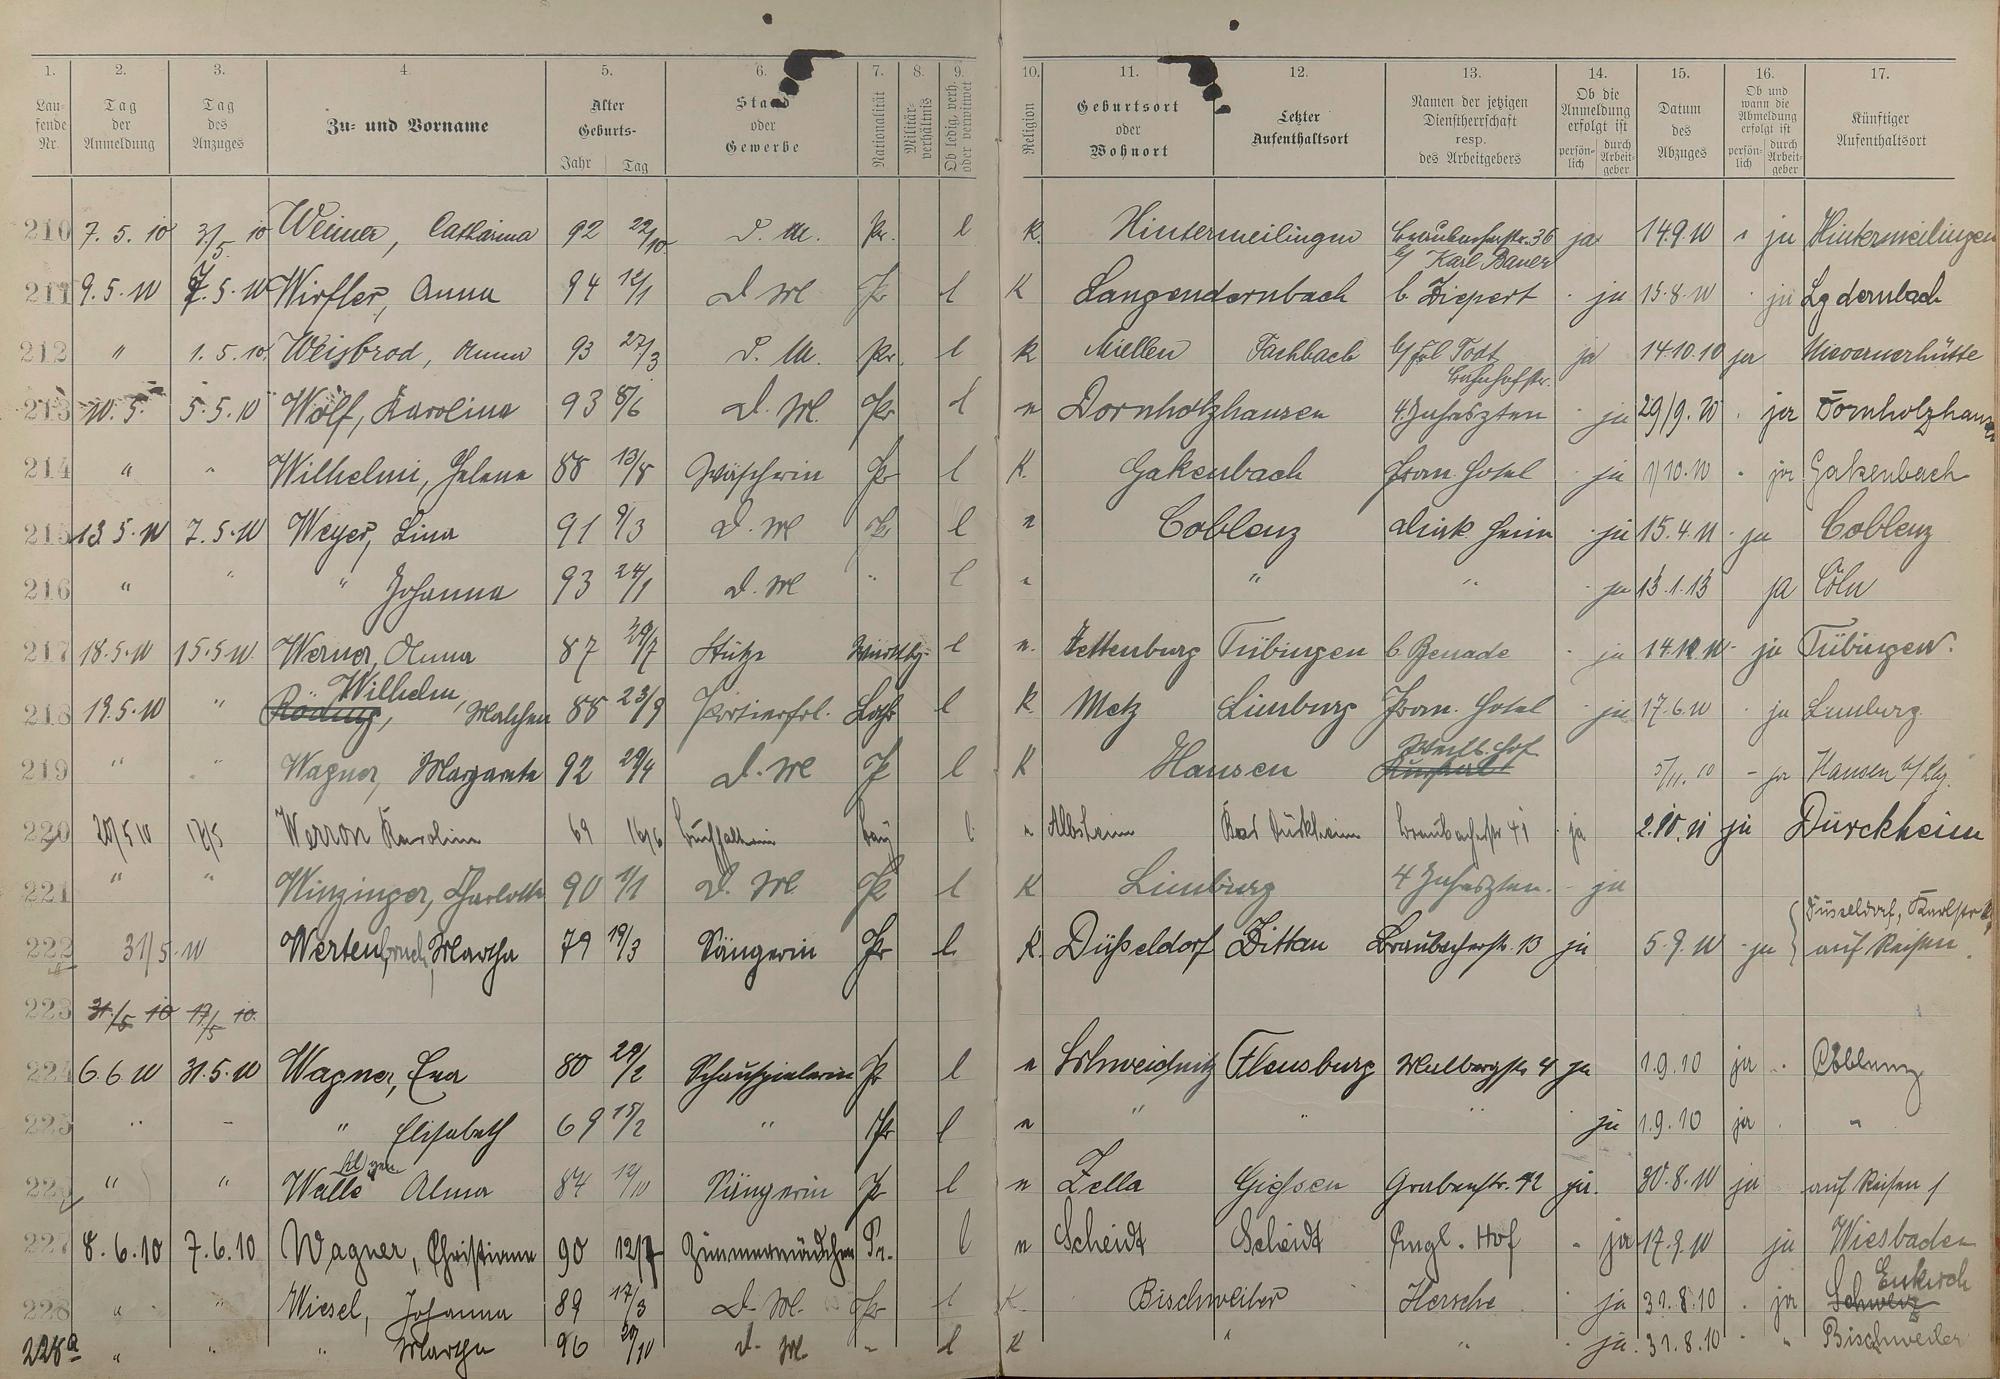 1. 2. 3. 4. 5. 6. 7. 8. 9. 10. 11. 12. 13. 14. 15. 16. 17.
Lau-fende Nr. Tag der Anmeldung Tag des Anzuges Zu- und Vorname Alter Geburts- Jahr Tag Stand oder Gewerbe Nationalität Militär-verhältnis Ob ledig, verh. oder verwitwet Religion Geburtsort oder Wohnort Letzter Aufenthaltsort Namen der jetzigen Dienstherrschaft resp. des Arbeitgebers Ob die Anmeldung erfolgt ist persön-lich durch Arbeit-geber Datum des Abzuges Ob und wann die Abmeldung erfolgt ist persön-lich durch Arbeit-geber Künftiger Aufenthaltsort
210 7. 5. 10 3/5. 10 Weimer, Catharina 92 22/10. D. M. Pr. l K. Hintermeilingen Braubacherstr. 36 b/ Karl Bauer ja 14.9.10 " ja Hintermeilingen
211 9.5.10 7.5.10 Wirfler, Anna 94 12/1 D. M Pr l K Langendernbach b. Diepert · ja 15.8.10 · ja Lgdernbach
212 " 1. 5. 10. Weisbrod, Anna 93 27/3 D. M. Pr. l K Miellen Fachbach b/ Frl Todt Bahnhofstr. ja 14.10.10 ja Nievernerhütte
213 10. 5. 5.5.10 Wolf, Karolina 93 8/6 D. M. Pr l n Dornholzhausen 4. Jahreszten · ja 29/9.10 · ja Dornholzhausen
214 " " Wilhelmi, Helene 88 13/8 Wäscherin Pr l K. Gakenbach Prom. Hotel · ja 1/10.10 " ja Gakenbach
215 13.5.10 7.5.10 Weyer, Lina 91 9/3 D. M Pr l n Coblenz Diak. Heim · ja 15.4.11 · ja Coblenz
216 " " " Johanna 93 24/1 D. M " l " " " · ja 13.1.13 ja Cöln
217 18.5.10 15.5.10. Werner, Anna 87 29/7 Stütze Württbg. l n. Tübingen b. Benade · ja ja Tübingen.
218 19.5.10 " Röding, Wilhelm, Malchen 88 23/9 Portierfrl. Lothr l K. Metz Limburg Prom. Hotel · ja 17.6.10 · ja Limburg
219 " " Wagner, Margarete 92 29/4 D. M P l K Hausen Weilb. Hof Kursaal 5/11. 10 – ja Hausen
220 20/5 10 17/5 Werron Karolin 69 16/6 Buchhalterin Bay l " Albsheim Bad Dürkheim Braubacherstr 41 · ja 2.10.11 ja Dürckheim
221 " " Winzinger, Charlotte 90 1/1 D. M Pr l K Limburg 4 Jahreszten. – ja
222 31/5.10 Wertenbruch, Martha 79 19/3 Sängerin Pr l. K. Düsseldorf Zittau Braubacherstr. 13 ja 5.9.10 · ja Düsseldorf, Karlstr auf Reisen.
223 31./5 10 17/5 10.
224 6.6.10 31.5.10 Wagner, Eva 80 29/2 Schauspielerin Pr l n Schweidnitz Flensburg Malbergstr 4 ja 1.9.10 ja · Coblenz
225 " – " Elisabeth 69 15/2 " Pr l n " " " ja 1.9.10 ja · "
" " Walle Alma 84 Sängerin Pr l n Zella Giessen Grabenstr. 42 ja. 30.8.10 ja auf Reisen
227 8.6.10 7.6.10 Wagner, Christiane 90 12/7 Zimmermädchen Pr. l n Scheidt Scheidt Engl. Hof " ja 17.9.10 ja Wiesbaden
228 " " Wiesel, Johanna 89 17/3 D. M. Pr l K. Bischweiler Hersche ja 31.8.10 · ja Enkirch
228a " " " Martha 96 29/10 d. M. " l K " " · ja. 31.8.10 " Bischweiler